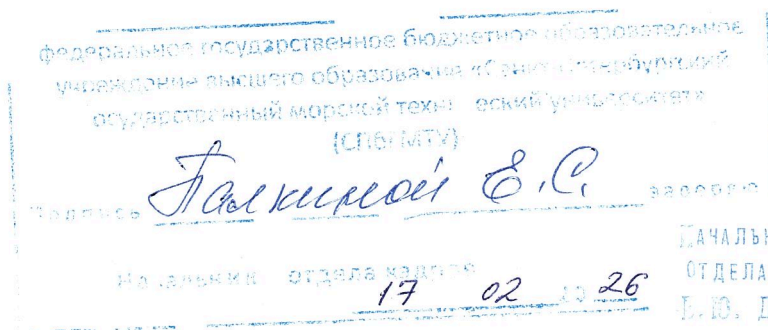 федеральное государственное бюджетное образовательное
учреждение высшего образования «Санкт-Петербургский
государственный морской технический университет»
(СПбГМТУ)
Подпись Палкиной Е.С. заверяю
Начальник отдела кадров
НАЧАЛЬН
ОТДЕЛА
17 02 20 26